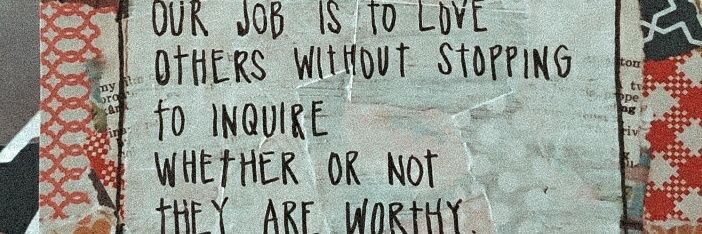 OUR JOB IS TO LOVE
OTHERS WITHOUT STOPPING
TO INQUIRE
WHETHER OR NOT
THEY ARE WORTHY.